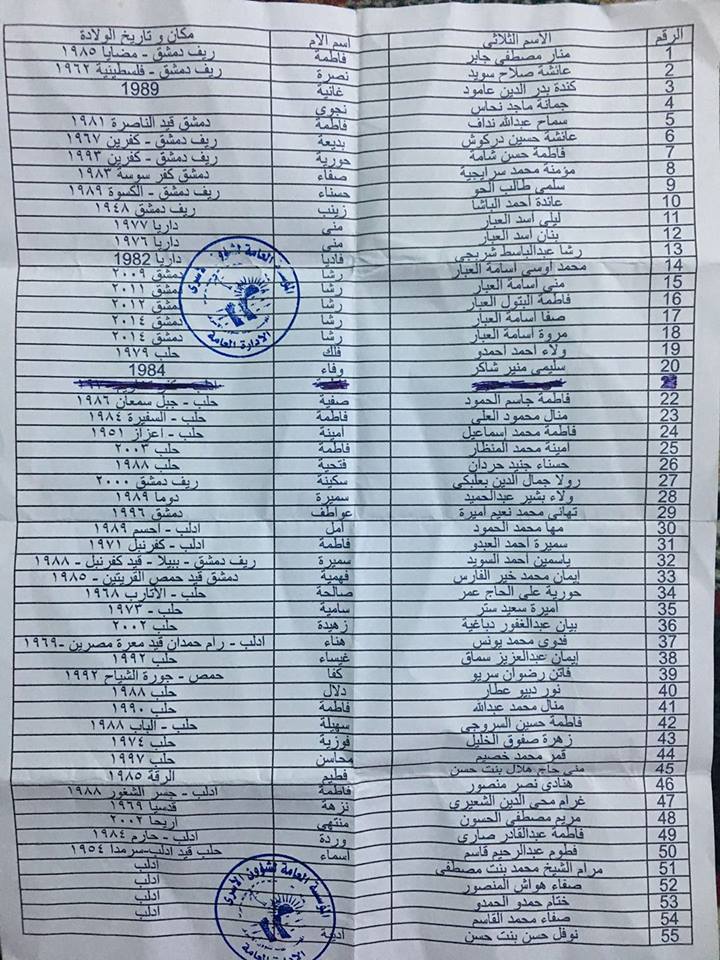 الرقم الاسم الثلاثي اسم الام مكان و تاريخ الولادة
1 منار مصطفى جابر فاطمة ريف دمشق - مضايا ١٩٨٥
2 عائشة صلاح سويد نصرة ريف دمشق - فلسطينية ١٩٦٢
3 كندة بدر الدين عامود غانية 1989
4 جمانة ماجد نحاس نجوى
5 سماح عبدالله نداف فاطمة دمشق قيد الناصرة ١٩٨١
6 عائشة حسين دركوش بديعة ريف دمشق - كفرين ١٩٦٧
7 فاطمة حسن شامة حورية ريف دمشق - كفرين ١٩٩٣
8 مؤمنة محمد سرايجية صفاء دمشق كفر سوسة ١٩٨٣
9 سلمى طالب الحو حسناء ريف دمشق - الكسوة ١٩٨٩
10 عائدة احمد الباشا زينب ريف دمشق ١٩٤٨
11 ليلى اسد العبار منى داريا ١٩٧٧
12 بنان اسد العبار منى داريا ١٩٧٦
13 رشا عبدالباسط شربجي فاديا داريا 1982
14 محمد اوسي اسامة العبار رشا دمشق ٢٠٠٩
15 منى اسامة العبار رشا دمشق ٢٠١١
16 فاطمة البتول العبار رشا دمشق ٢٠١٢
17 صفا اسامة العبار رشا دمشق ٢٠١٤
18 مروة اسامة العبار رشا دمشق ٢٠١٤
19 ولاء احمد احمدو فلك حلب ١٩٧٩
20 سليمى منير شاكر وفاء 1984
22 فاطمة جاسم الحمود صفية حلب - جبل سمعان ١٩٨٦
23 منال محمود العلي فاطمة حلب - السفيرة ١٩٨٤
24 فاطمة محمد إسماعيل امينة حلب - اعزاز ١٩٥١
25 امينة محمد المنظار فاطمة حلب ٢٠٠٣
26 حسناء جنيد حردان فتحية حلب ١٩٨٨
27 رولا جمال الدين بعلبكي سكينة ريف دمشق ٢٠٠٠
28 ولاء بشير عبدالحميد سميرة دوما ١٩٨٩
29 تهاني محمد نعيم اميرة عواطف دمشق ١٩٩٦
30 مها محمد الحمود امل ادلب - احسم ١٩٨٩
31 سميرة احمد العبدو فاطمة ادلب - كفرنبل ١٩٧١
32 ياسمين احمد السويد سميرة ريف دمشق - ببيلا - قيد كفرنبل - ١٩٨٨
33 إيمان محمد خير الفارس فهمية دمشق قيد حمص القريتين - ١٩٨٥
34 حورية علي الحاج عمر صالحة حلب - الأتارب ١٩٦٨
35 اميرة سعيد ستر سامية حلب - ١٩٧٣
36 بيان عبدالغفور دباغية زهيدة حلب ٢٠٠٢
37 فدوى محمد يونس هناء ادلب - رام حمدان قيد معرة مصرين -١٩٦٩
38 إيمان عبدالعزيز سماق غيساء حلب ١٩٩٢
39 فاتن رضوان سريو كفا حمص - جورة الشياح ١٩٩٢
40 نور ديبو عطار دلال حلب ١٩٨٨
41 منال محمد عبدالله فاطمة حلب ١٩٩٠
42 فاطمة حسين السروجي سهيلة حلب - الباب ١٩٨٨
43 زهرة صفوق الخليل فوزية حلب ١٩٧٤
44 قمر محمد خصيم محاسن حلب ١٩٩٧
45 منى حاج هلال بنت حسن فطيم الرقة ١٩٨٥
46 هنادي نصر منصور فاطمة ادلب - جسر الشغور ١٩٨٨
47 غرام محي الدين الشعيري نزهة قدسيا ١٩٦٩
48 مريم مصطفى الحسون منتهى اريحا ٢٠٠٢
49 فاطمة عبدالقادر صاري وردة ادلب - حارم ١٩٨٤
50 فطوم عبدالرحيم قاسم اسماء حلب قيد ادلب-سرمدا ١٩٥٤
51 مرام الشيخ محمد بنت مصطفى ادلب
52 صفاء هواش المنصور ادلب
53 ختام حمدو الحمدو ادلب
54 صفاء محمد القاسم ادلب
55 نوفل حسن بنت حسن
المؤسسة العامة لشؤون الأسرى
الإدارة العامة
المؤسسة العامة لشؤون الأسرى
الإدارة العامة